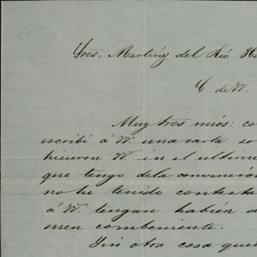 Sres. Martínez del Río H
C de V.
Muy Sres mios: co
escribí á V. una carta so
hicieron V en el ultim
que tengo de la convención
no he tenido contesta
á V. tengan habién a
men combeniente.
Sin otra cosa que